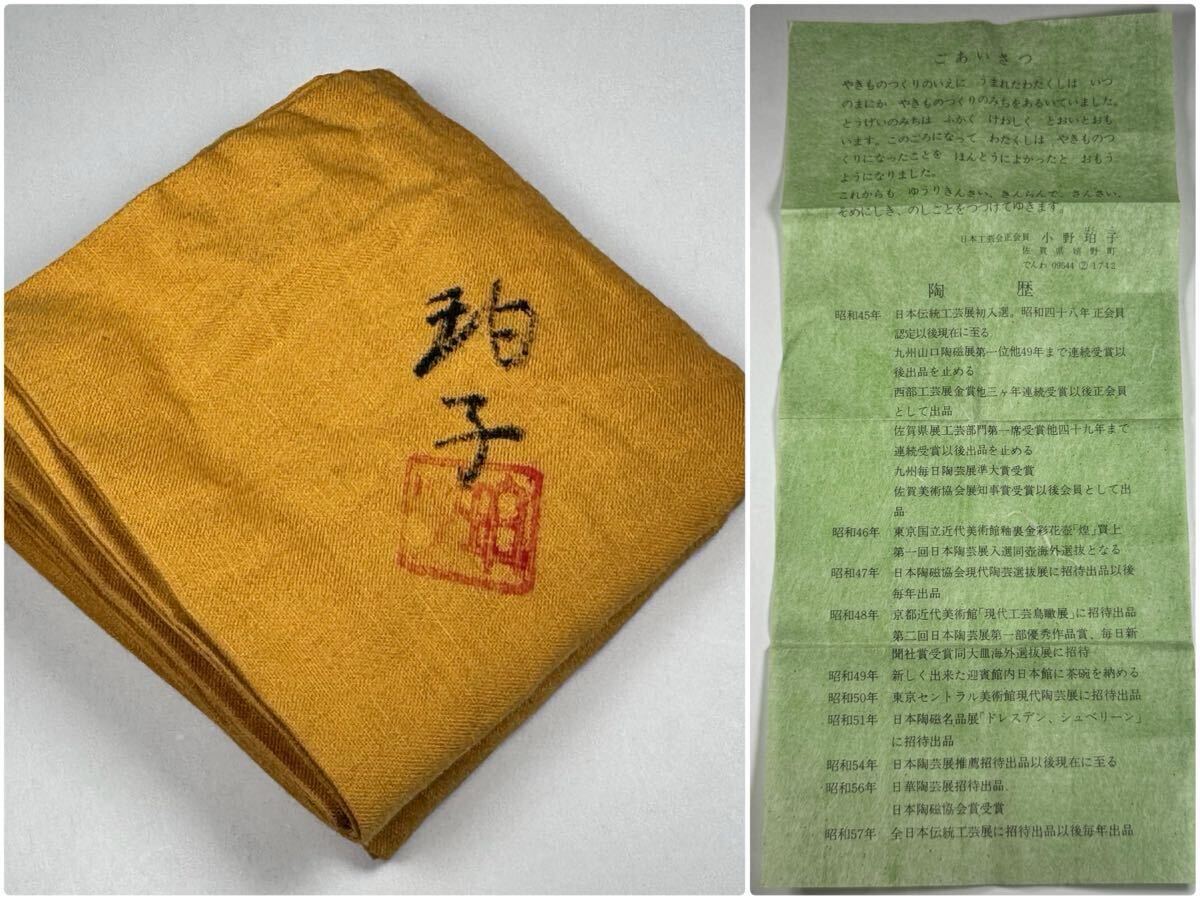 珀
子
ごあいさつ
やきものつくりのいえに うまれたわたくしは いつ
のまにか やきものつくりのみちをあるいていました。
とうげいのみちは ふかく けわしく とおいとおも
います。このごろになって わたくしは やきものつ
くりになったことを ほんとうによかったと おもう
ようになりました。
これからも ゆうりきんさい、きんらんで、さんさい、
そめにしき、のしごとをつづけてゆきます。
日本工芸会正会員 小野珀子
佐賀県嬉野町
でんわ 09544 ② 1742
陶歴
昭和45年 日本伝統工芸展初入選。昭和四十八年正会員
認定以後現在に至る
九州山口陶磁展第一位他49年まで連続受賞以
後出品を止める
西部工芸展金賞他三ヶ年連続受賞以後正会員
として出品
佐賀県展工芸部門第一席受賞他四十九年まで
連続受賞以後出品を止める
九州毎日陶芸展準大賞受賞
佐賀美術協会展知事賞受賞以後会員として出
品
昭和46年 東京国立近代美術館釉裏金彩花壺「煌」買上
第一回日本陶芸展入選同壺海外選抜となる
昭和47年 日本陶磁協会現代陶芸選抜展に招待出品以後
毎年出品
昭和48年 京都近代美術館「現代工芸鳥瞰展」に招待出品
第二回日本陶芸展第一部優秀作品賞、毎日新
聞社賞受賞同大皿海外選抜展に招待
昭和49年 新しく出来た迎賓館内日本館に茶碗を納める
昭和50年 東京セントラル美術館現代陶芸展に招待出品
昭和51年 日本陶磁名品展「ドレスデン、シュベリーン」
に招待出品
昭和54年 日本陶芸展推薦招待出品以後現在に至る
昭和56年 日華陶芸展招待出品
日本陶磁協会賞受賞
昭和57年 全日本伝統工芸展に招待出品以後毎年出品